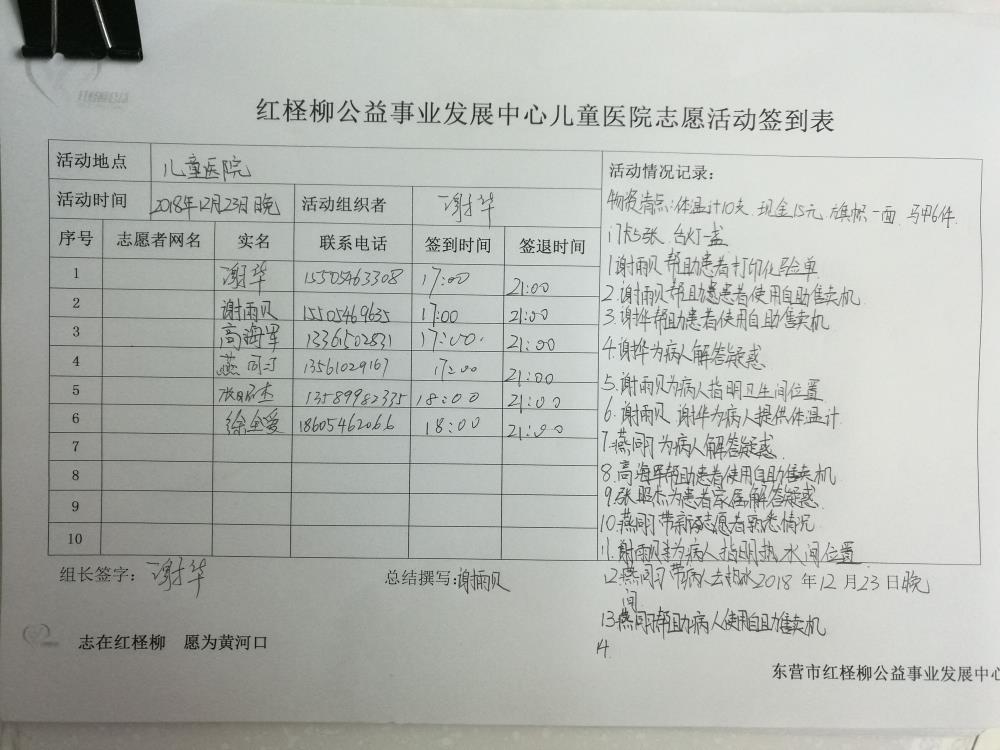 红柽柳公益事业发展中心儿童医院志愿活动签到表
活动地点 儿童医院
活动时间 2018年12月23日晚 活动组织者 谢华
序号 志愿者网名 实名 联系电话 签到时间 签退时间
1 谢华 15505463308 17:00 21:00
2 谢雨贝 15505469635 17:00 21:00
3 高海军 13361502831 17:00 21:00
4 燕同刁 13561029167 17:00 21:00
5 张昭杰 13589982335 18:00 21:00
6 徐金爱 18605462066 18:00 21:00
7
8
9
10
活动情况记录:
物资清点:体温计10支 现金15元 旗帜一面 马甲6件
门卡5张 台灯一盏
1 谢雨贝帮助患者打印化验单
2. 谢雨贝帮助患者使用自助售卖机
3. 谢华帮助患者使用自助售卖机
4. 谢华为病人解答疑惑
5. 谢雨贝为病人指明卫生间位置
6. 谢雨贝 谢华为病人提供体温计
7. 燕同刁为病人解答疑惑
8. 高海军帮助患者使用自助售卖机
9. 张昭杰为患者家属解答疑惑
10. 燕同刁带新志愿者熟悉情况
11. 谢雨贝为病人指明热水间位置
12 燕同刁带病人去 2018 年 12 月 23 日晚
间
13 燕同刁帮助病人使用自助售卖机
14.
组长签字: 谢华 总结撰写: 谢雨贝
志在红柽柳 愿为黄河口
东营市红柽柳公益事业发展中心